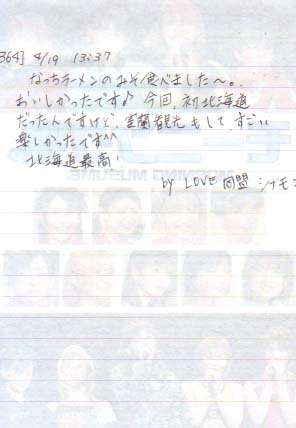 364] 4/19 13:37
なっちラーメンのみそ食べました〜。
おいしかったです♪ 今回、初北海道
だったんですけど、室蘭観光もして、すごい
楽しかったです^^
北海道最高!
by LOVE同盟 シナモン
MORNING MUSUME